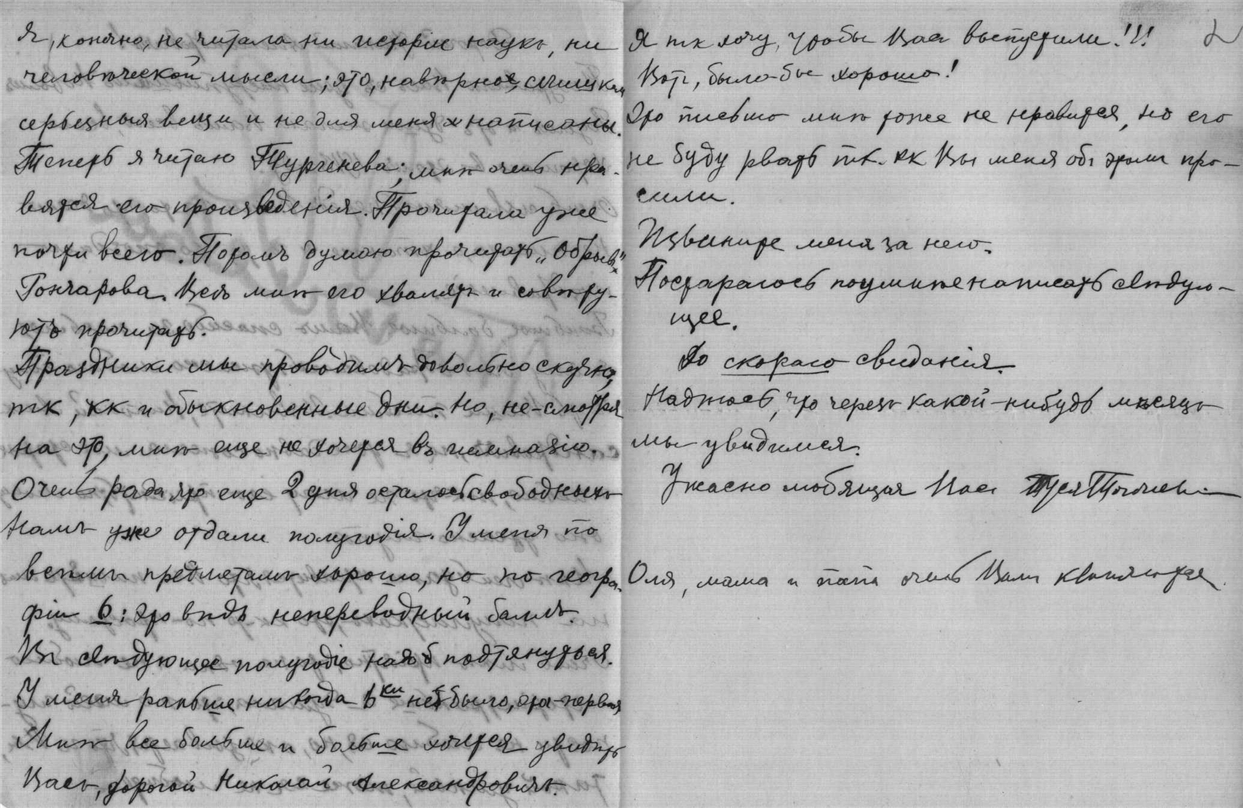 Я, конечно, не читала ни исторіи наукъ, ни
человѣческой мысли; это, навѣрное, слишкомъ
серьезныя вещи и не для меня написаны.
Теперь я читаю Тургенева; мнѣ очень нра-
вятся его произведенія. Прочитала уже
почти всего. Потомъ думаю прочитать „Обрывъ“
Гончарова. Всѣ мнѣ его хвалятъ и совѣту-
ютъ прочитать.
Праздники мы проводимъ довольно скучно,
тк, кк и обыкновенные дни. Но, не-смотря
на это, мнѣ еще не хочется въ гимназію.
Очень рада что еще 2 дня осталось свободныхъ
Намъ уже отдали полугодія. У меня по
всѣмъ предметамъ хорошо, но по геогра-
фіи 6: это вѣдь непереводный баллъ.
Въ слѣдующее полугодіе надо подтянуться.
У меня раньше никогда 6ки не было, эта-первая
Мнѣ все больше и больше хочется увидѣть
Васъ, дорогой Николай Александровичъ.
Я тк хочу, чтобы Васъ выпустили!!!
2
Вотъ, было-бы хорошо!
Это письмо мнѣ тоже не нравится, но его
не буду рвать тк. кк Вы меня объ этомъ про-
сили.
Извините меня за него.
Постараюсь поумнѣе написать слѣдую-
щее.
До скораго свиданія.
Надѣюсь, что черезъ какой-нибудь мѣсяцъ
мы увидимся.
Ужасно любящая Васъ Туся
Оля, мама и папа очень Вамъ кланяются.